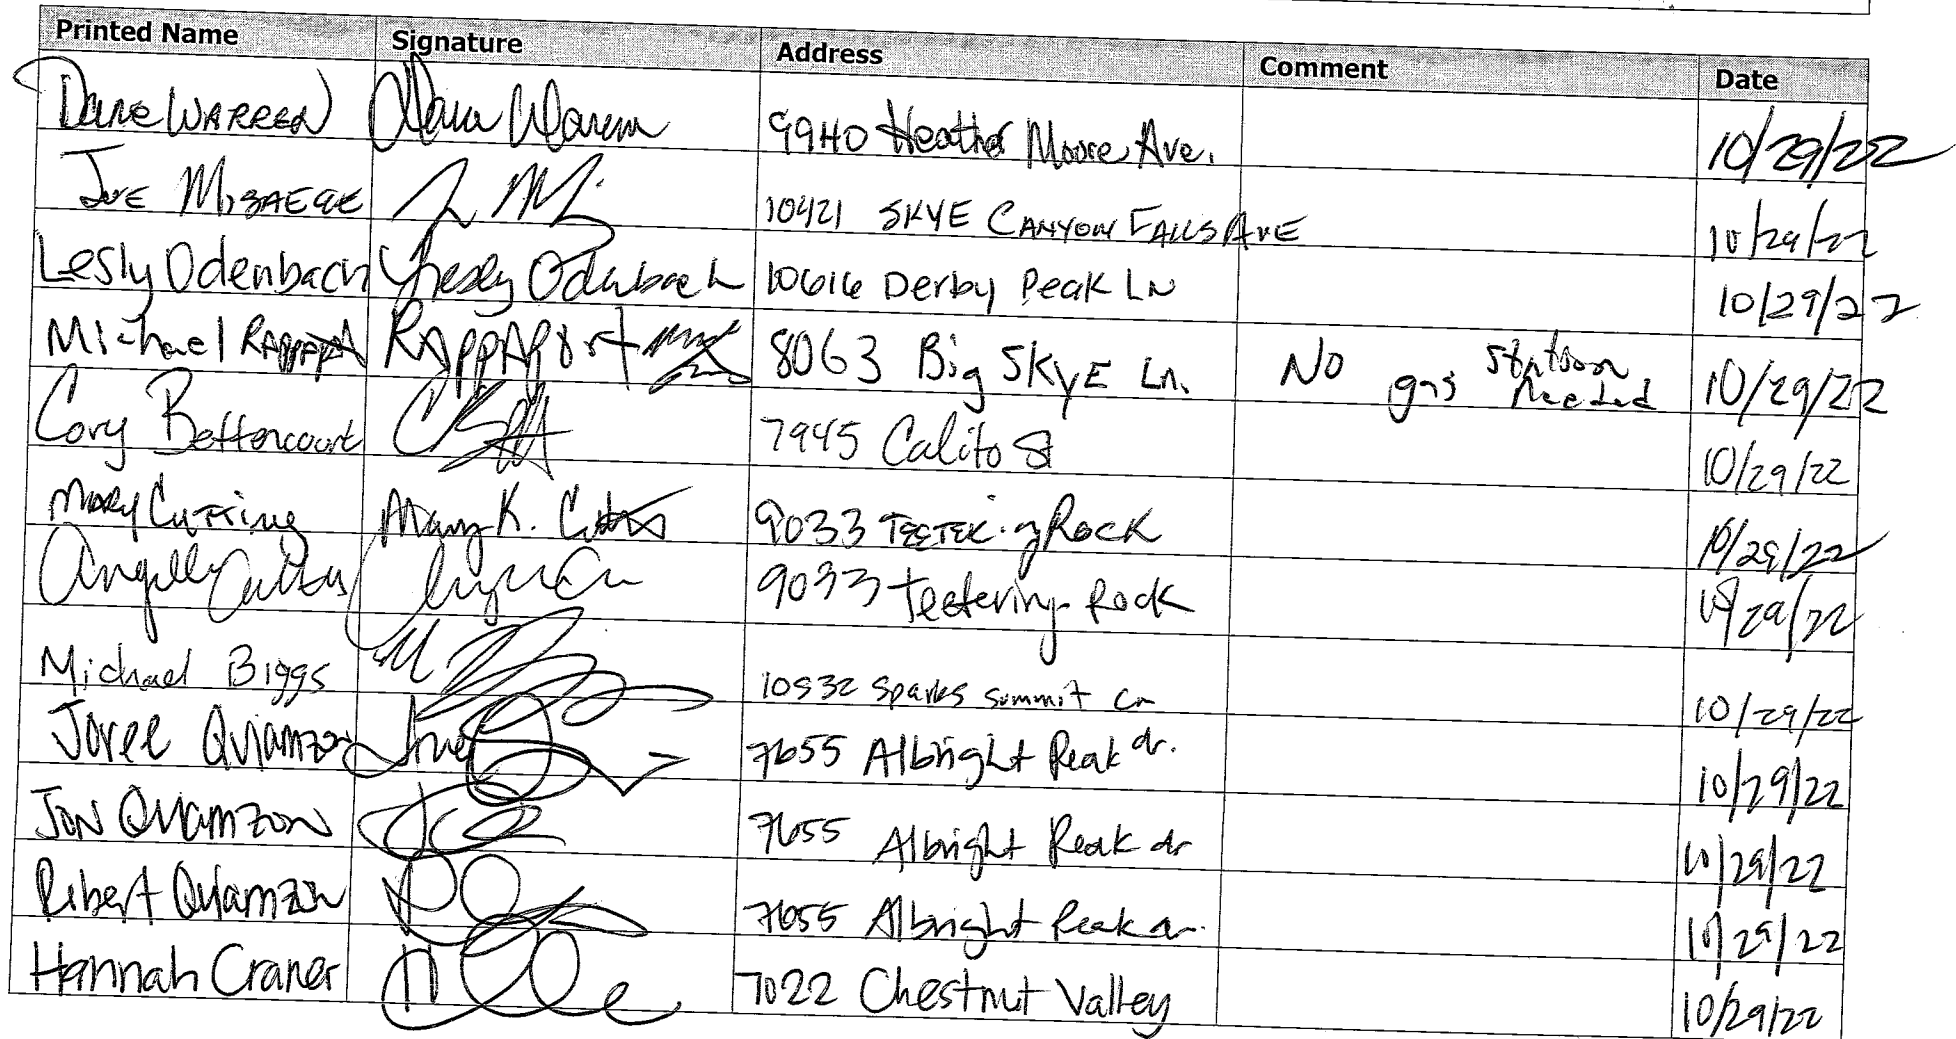 Printed Name Signature Address Comment Date
Dane WARREN 9940 Heather Moore Ave. 10/29/22
JOE 10421 SKYE CANYON FALLS AVE 10/29/22
Lesly Odenbach Lesly Odenbach 10616 Derby Peak LN 10/29/22
Michael RAPPAPORT 8063 Big SKYE Ln. No gas station needed 10/29/22
Cory Bettencourt 7945 Calito St 10/29/22
Mary Cutting Mary K. 9033 Rock 10/29/22
9033 Teetering Rock 10/29/22
Michael Biggs 10532 Sparks Summit Ln 10/29/22
Joree Quiamzon 7655 Albright Peak dr. 10/29/22
JON Quiamzon 7655 Albright Peak dr 10/29/22
Robert Quiamzon 7655 Albright Peak dr. 10/29/22
Hannah Craner 7022 Chestnut Valley 10/29/22